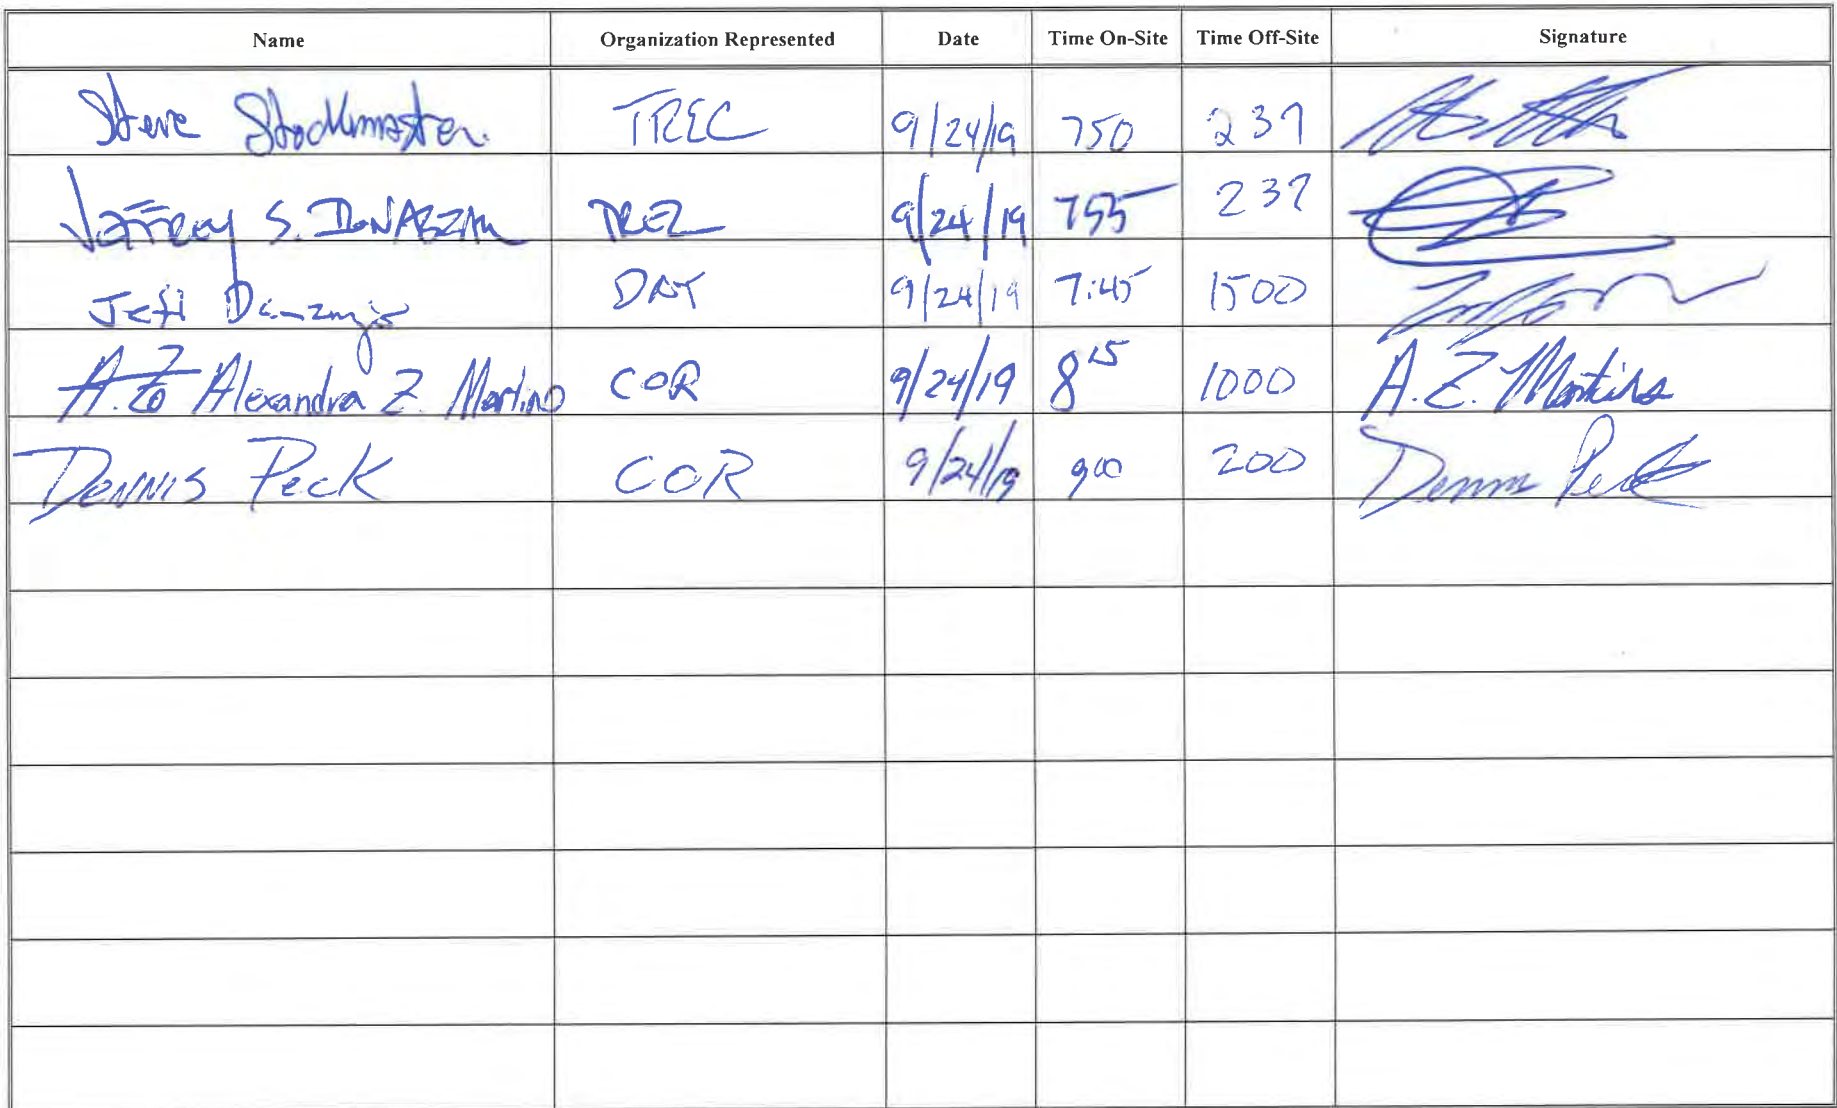 Name Organization Represented Date Time On-Site Time Off-Site Signature
Steve Stockmaster TREC 9/24/19 750 237
Jeffrey S. TREC 9/24/19 755 237
Jeff Danzinger DAY 9/24/19 7:45 1500
A. Zo Alexandra Z. Martino COR 9/24/19 8 15 1000 A. Z. Martino
Dennis Peck COR 9/24/19 900 200 Dennis Peck